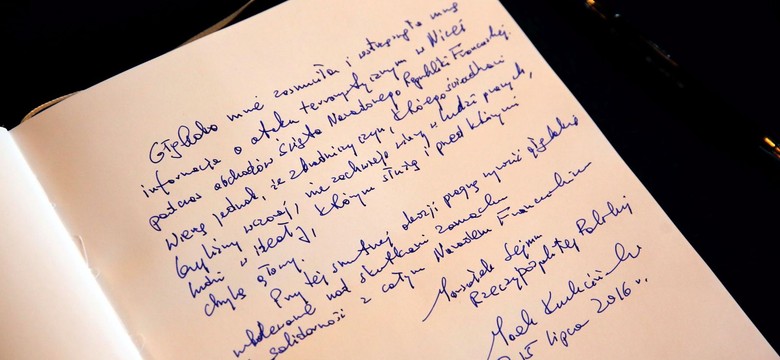 Głęboko mnie zasmuciła i wstrząsnęła mną
informacja o ataku terrorystycznym w Nicei
podczas obchodów Święta Narodowego Republiki Francuskiej.
Wierzę jednak, że zbrodniczy czyn, którego świadkami
byliśmy wczoraj, nie zachwieje wiary ludzi prawych,
ludzi w ideały, którym służą i przed którymi
chylę głowy.
Przy tej smutnej okazji pragnę wyrazić głębokie
ubolewanie nad skutkami zamachu
i solidarność z całym Narodem Francuskim
Marszałek Sejmu
Rzeczypospolitej Polskiej
Marek Kuchciński
15 lipca 2016 r.